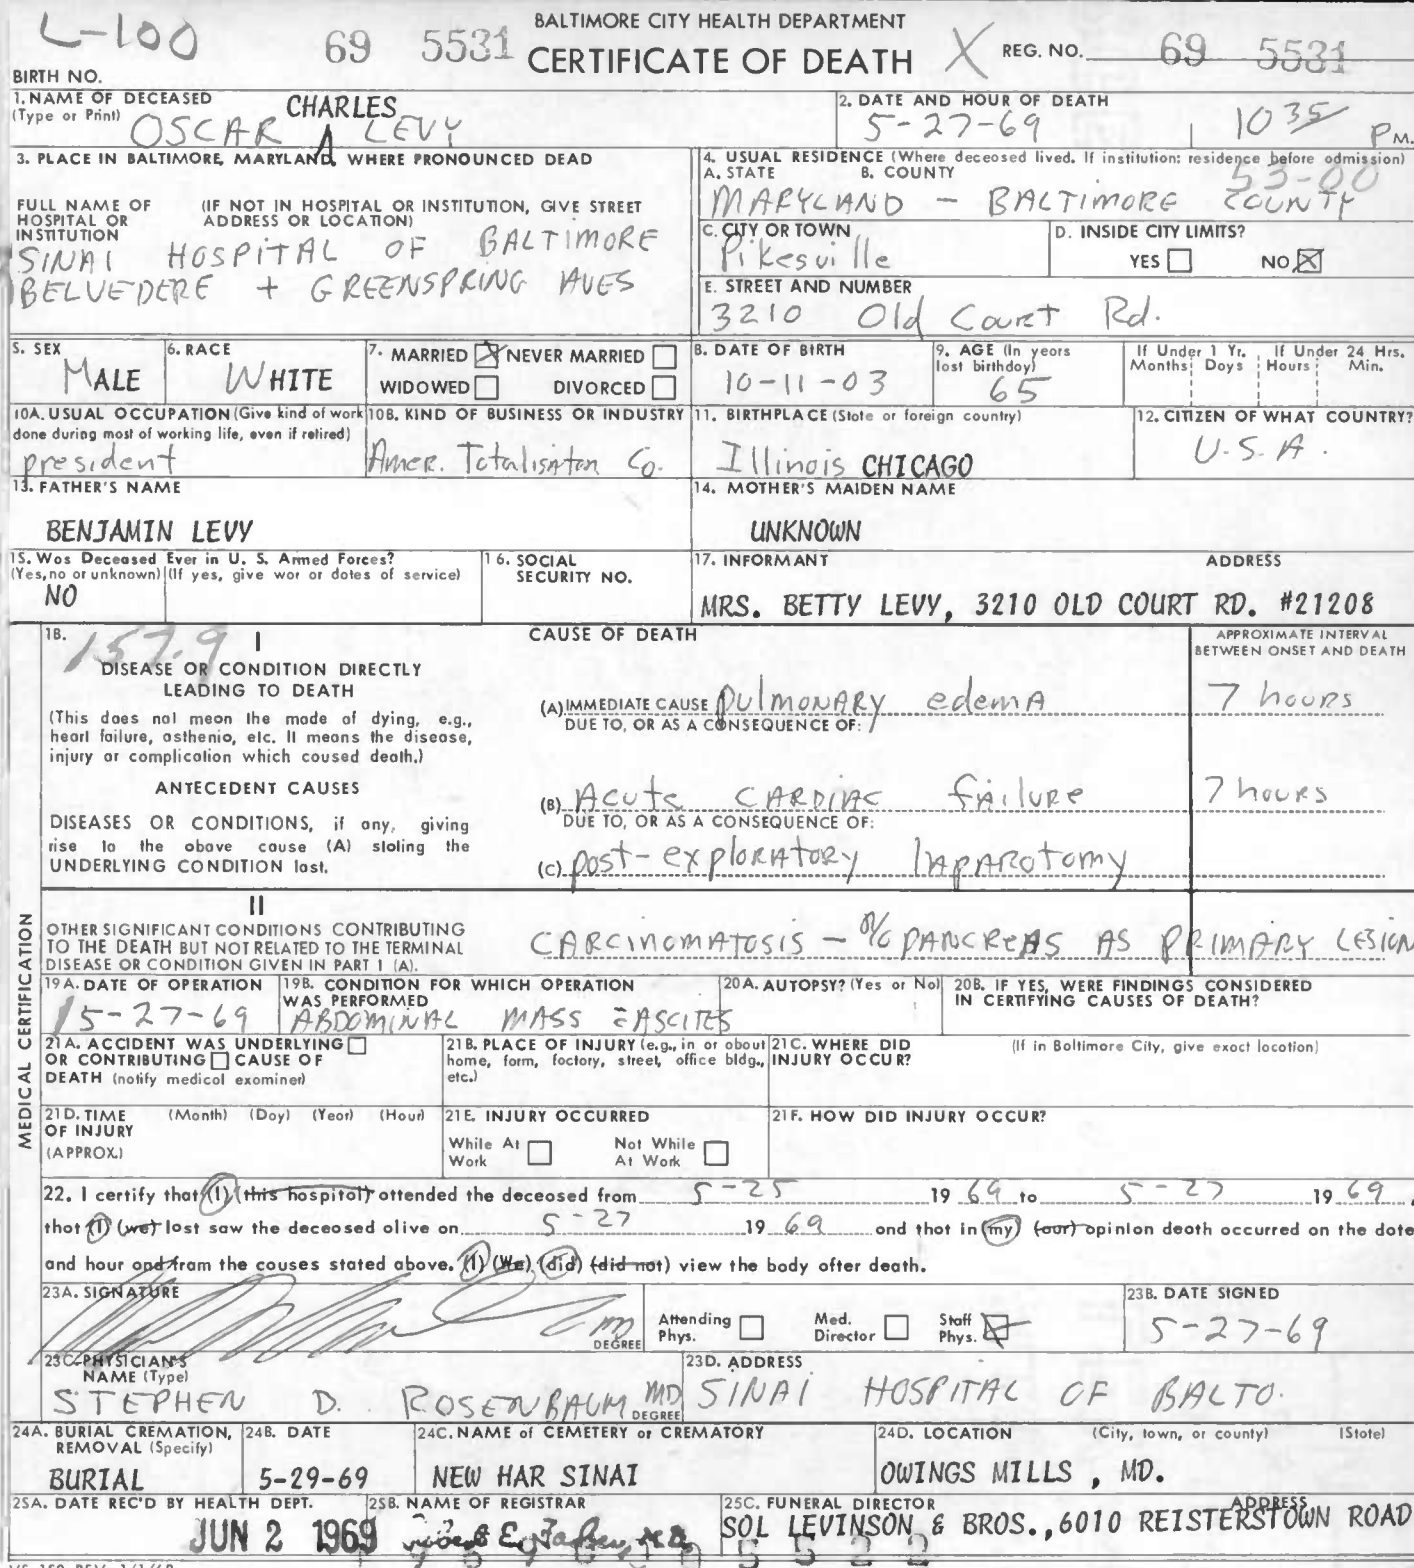 L-100
69 5531
BALTIMORE CITY HEALTH DEPARTMENT
CERTIFICATE OF DEATH
X
REG. NO. 69 5531
BIRTH NO.
1. NAME OF DECEASED
(Type or Print)
OSCAR CHARLES LEVY
2. DATE AND HOUR OF DEATH
5-27-69 10 35 P M.
3. PLACE IN BALTIMORE, MARYLAND, WHERE PRONOUNCED DEAD
FULL NAME OF HOSPITAL OR INSTITUTION
(IF NOT IN HOSPITAL OR INSTITUTION, GIVE STREET ADDRESS OR LOCATION)
SINAI HOSPITAL OF BALTIMORE
BELVEDERE + GREENSPRING AVES
4. USUAL RESIDENCE (Where deceased lived. If institution: residence before admission)
A. STATE B. COUNTY
53-00
MARYLAND - BALTIMORE COUNTY
C. CITY OR TOWN
Pikesville
D. INSIDE CITY LIMITS?
YES NO X
E. STREET AND NUMBER
3210 Old Court Rd.
5. SEX
MALE
6. RACE
WHITE
7. MARRIED X NEVER MARRIED
WIDOWED DIVORCED
8. DATE OF BIRTH
10-11-03
9. AGE (In years last birthday)
65
If Under 1 Yr. Months Days
If Under 24 Hrs. Hours Min.
10A. USUAL OCCUPATION (Give kind of work done during most of working life, even if retired)
president
10B. KIND OF BUSINESS OR INDUSTRY
Amer. Totalisator Co.
11. BIRTHPLACE (State or foreign country)
Illinois CHICAGO
12. CITIZEN OF WHAT COUNTRY?
U.S.A.
13. FATHER'S NAME
BENJAMIN LEVY
14. MOTHER'S MAIDEN NAME
UNKNOWN
15. Was Deceased Ever in U. S. Armed Forces?
(Yes, no or unknown) (If yes, give war or dates of service)
NO
16. SOCIAL SECURITY NO.
17. INFORMANT ADDRESS
MRS. BETTY LEVY, 3210 OLD COURT RD. #21208
MEDICAL CERTIFICATION
18.
157.9
I
DISEASE OR CONDITION DIRECTLY
LEADING TO DEATH
(This does not mean the mode of dying, e.g.,
heart failure, asthenia, etc. It means the disease,
injury or complication which caused death.)
ANTECEDENT CAUSES
DISEASES OR CONDITIONS, if any, giving
rise to the above cause (A) stating the
UNDERLYING CONDITION last.
CAUSE OF DEATH
APPROXIMATE INTERVAL
BETWEEN ONSET AND DEATH
(A) IMMEDIATE CAUSE Pulmonary edema 7 hours
DUE TO, OR AS A CONSEQUENCE OF:
(B) Acute CARDIAC failure 7 hours
DUE TO, OR AS A CONSEQUENCE OF:
(C) post-exploratory laparotomy
II
OTHER SIGNIFICANT CONDITIONS CONTRIBUTING
TO THE DEATH BUT NOT RELATED TO THE TERMINAL
DISEASE OR CONDITION GIVEN IN PART 1 (A).
CARCINOMATOSIS - PANCREAS AS PRIMARY LESION
19A. DATE OF OPERATION
5-27-69
19B. CONDITION FOR WHICH OPERATION WAS PERFORMED
ABDOMINAL MASS ASCITES
20A. AUTOPSY? (Yes or No)
20B. IF YES, WERE FINDINGS CONSIDERED
IN CERTIFYING CAUSES OF DEATH?
21A. ACCIDENT WAS UNDERLYING
OR CONTRIBUTING CAUSE OF
DEATH (notify medical examiner)
21B. PLACE OF INJURY (e.g., in or about
home, farm, factory, street, office bldg.,
etc.)
21C. WHERE DID INJURY OCCUR?
(If in Baltimore City, give exact location)
21D. TIME OF INJURY (APPROX.)
(Month) (Day) (Year) (Hour)
21E. INJURY OCCURRED
While At Work Not While At Work
21F. HOW DID INJURY OCCUR?
22. I certify that (I) (this hospital) attended the deceased from 5-25 19 69 to 5-27 19 69,
that (I) (we) last saw the deceased alive on 5-27 19 69 and that in (my) (our) opinion death occurred on the date
and hour and from the causes stated above. (I) (We) (did) (did not) view the body after death.
23A. SIGNATURE
MD
DEGREE
Attending Phys. Med. Director Staff Phys. X
23B. DATE SIGNED
5-27-69
23C. PHYSICIAN'S NAME (Type)
STEPHEN D. ROSENBAUM MD
DEGREE
23D. ADDRESS
SINAI HOSPITAL OF BALTO.
24A. BURIAL CREMATION, REMOVAL (Specify)
BURIAL
24B. DATE
5-29-69
24C. NAME of CEMETERY or CREMATORY
NEW HAR SINAI
24D. LOCATION (City, town, or county) (State)
OWINGS MILLS, MD.
25A. DATE REC'D BY HEALTH DEPT.
JUN 2 1969
25B. NAME OF REGISTRAR
Robert E. Farber, M.D.
25C. FUNERAL DIRECTOR ADDRESS
SOL LEVINSON & BROS., 6010 REISTERSTOWN ROAD